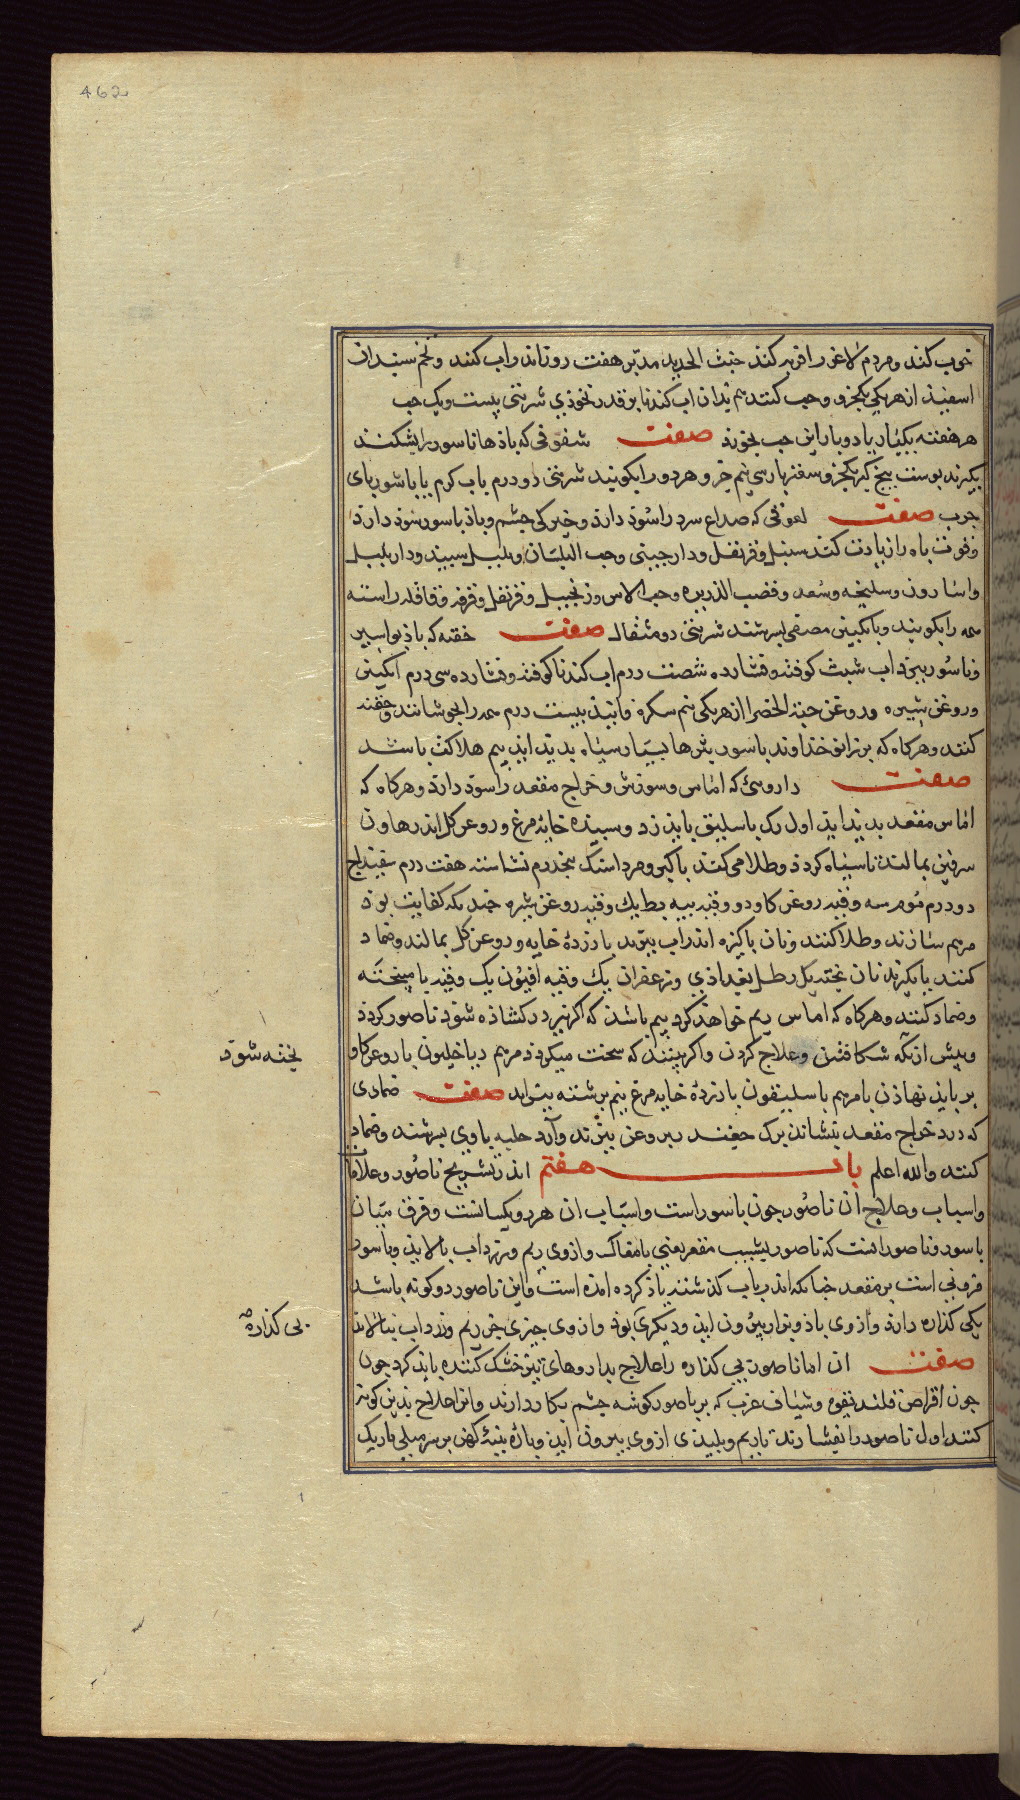 462
خوب کند ومردم لاغر را فربه کند خبث الحدید مدبر هفت روز اندر اب کنند وتخم سپندان
اسفید از هر یکی یکجزو وحب کنند هم بذان اب کندنا بر قدر نخوذی شربتی بیست ویک حب
هر هفته یکبار یا دوبار این حب بخورند صفت سفوفی که باذها ناسور را بشکند
بکیرند پوست بیخ کبر یکجزو وسعتر پارسی نیم جزو هر دو را بکوبند شربتی دو درم باب کرم یا با شوربای
چرب صفت لعوقی که صداع سرد را سوذ دارذ وخیرکی چشم وباذ باسور سوذ دارذ
وقوت باه را زیادت کند سنبل وقرنفل ودارچینی وحب البلسان وبلبل سپید ودار بلبل
واسارون وسلیخه وسعد وقصب الذریره وحب الاس وزنجبیل وقرنفل وقرفه وقاقله راسته
همه را بکوبند وبانکبین مصفی بسرشند شربتی دو مثقال صفت حقنه که باذ بواسیر
وناسور ببرذ اب شبث کوفته وفشارده شصت درم اب کندنا کوفته وفشارده سی درم انکبین
وروغن شیره وروغن حبة الخضرا از هر یکی نیم سکره فانیذ بیست درم همه را بجوشانند وحقنه
کنند وهرکاه که بر زانو خداوند باسور بثرها بسیار سیاه بدید ایذ بیم هلاکت باشد
صفت داروئی که اماس وسوزش وخراج مقعد را سوذ دارذ وهرکاه که
اماس مقعد بدید ایذ اول رک باسلیق بایذ زد وسپیده خایه مرغ وروغن کل اندر هاون
سربین بمالند تا سیاه کردذ وطلا می کنند با کبی ومرداسنک پنجدرم نشاسته هفت درم سفیداج
دو درم موم سه وقیه روغن کاو دو وقیه پیه بط یک وقیه روغن شیره چندانکه کفایت بوذ
مرهم سازند وطلا کنند ونان پاکیزه اندر اب بپزند با زردهٔ خایه وروغن کل بمالند وضماد
کنند یا بکیرند نان پخته یک رطل بغداذی وزعفران یک وقیه افیون یک وقیه با میبخته
وضماد کنند وهرکاه که اماس ریم خواهذ کرد بیم باشذ که اکر نبرد در کشاذه شوذ ناصور کردذ
وپیش از انکه شکافتن وعلاج کردن واکر بینند که سخت میکردذ مرهم دیاخلیون با روغن کاو
پخته شوذ
بر بایذ نهاذن یا مرهم باسلیقون با زردهٔ خایه مرغ نیم برشته بیزاید صفت ضمادی
که درد خراج مقعد بنشاند برک چغندر بروغن بپزند وآرد حلبه با وی بسرشند وضماد
کنند والله اعلم باب هفتم اندر تشریح ناصور وعلامات
واسباب وعلاج ان ناصور چون باسور است واسباب ان هر دو یکسانست وفرق میان
باسور وناصور انست که ناصور یشیب مقعر یعنی بامغاک وازوی ریم وزرداب بالایذ وباسور
فزونی است بر مقعد چنانکه اندر باب کذشته یاذ کرده امده است واین ناصور دو کونه باشد
یکی کذاره دارذ وازوی باذ وبراز بیرون ایذ ودیکری بوذ وازوی چیزی جز ریم وزرداب نیالایذ
بی کذاره
صفت ان اما ناصور بی کذاره را علاج بداروهای تیز خشک کننده بایذ کرد چون
چون اقراص فلندیقون وشیاف غرب که بر ناصور کوشه چشم بکار دارند وانرا علاج بذین کونه
کنند اول ناصور را بفشارند تا ریم وپلیذی ازوی بیرون ایذ وپارهٔ پنبهٔ کهن بر سر میلی باریک